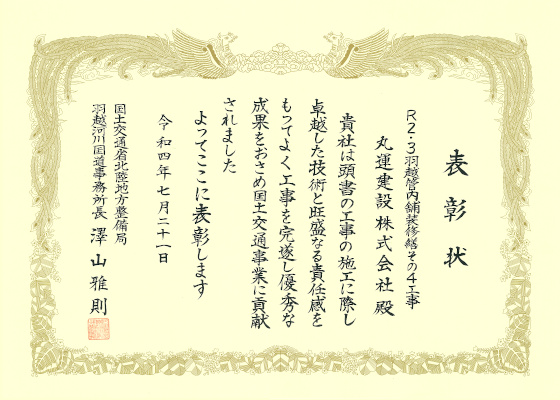 表彰状
R2・3羽越管内舗装修繕その4工事
丸運建設株式会社殿
貴社は頭書の工事の施工に際し
卓越した技術と旺盛なる責任感を
もってよく工事を完遂し優秀な
成果をおさめ国土交通事業に貢献
されました
よってここに表彰します
令和四年七月二十一日
国土交通省北陸地方整備局
羽越河川国道事務所長 澤山雅則